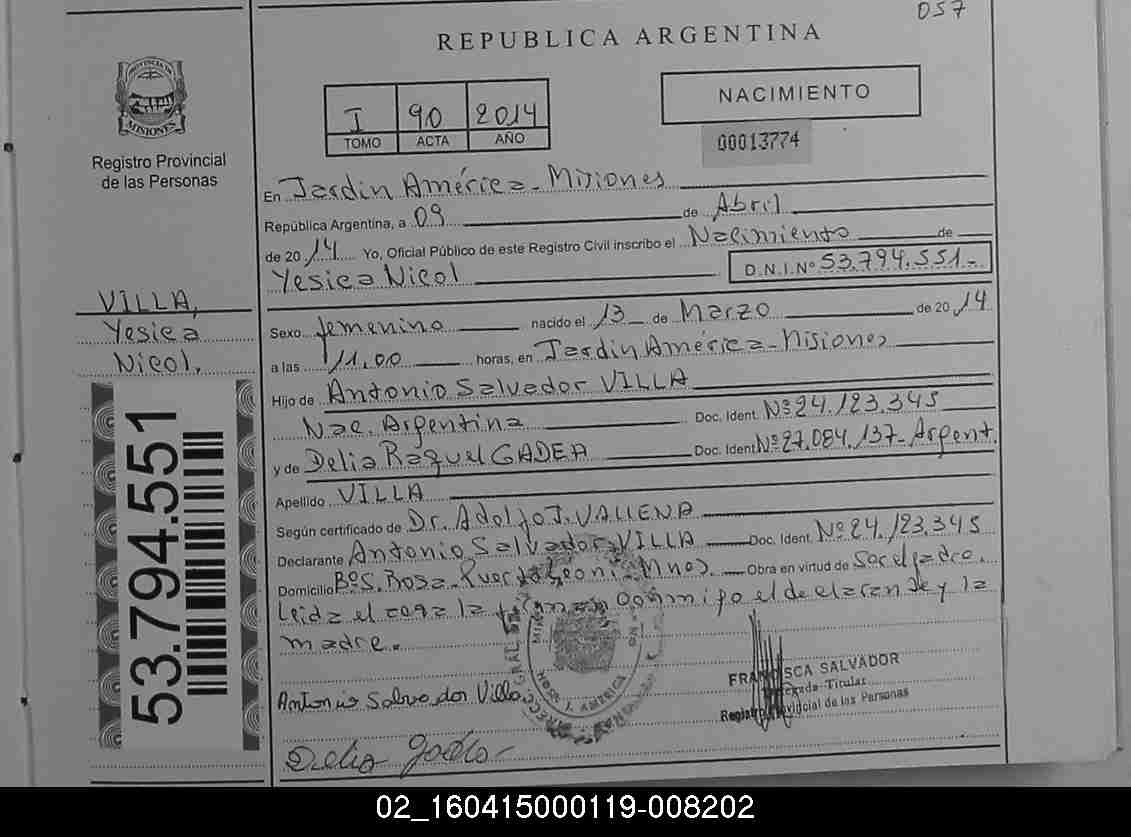 057
REPUBLICA ARGENTINA
PROVINCIA DE
MISIONES
Registro Provincial
de las Personas
I 90 2014
TOMO ACTA AÑO
NACIMIENTO
00013774
En Jardin América - Misiones
República Argentina, a 09 de Abril
de 2014 Yo, Oficial Público de este Registro Civil inscribo el Nacimiento de
Yesica Nicol D.N.I.Nº 53.794.551-
VILLA,
Yesica
Nicol.
53.794.551
Sexo femenino nacido el 13 de Marzo de 2014
a las 11,00 horas, en Jardin América - Misiones
Hijo de Antonio Salvador VILLA
Nac. Argentina Doc. Ident. Nº 24.123.345
y de Delia Raquel GADEA Doc. Ident Nº 27.084.137- Argent.
Apellido VILLA
Según certificado de Dr. Adolfo J. VALLENA
Declarante Antonio Salvador VILLA Doc. Ident. Nº 24.123.345
Domicilio Bº S. Rosa - Puerto Leoni - Mnes. Obra en virtud de Ser el padre.
Leida el acta la firman conmigo el declarante y la
madre.
Antonio Salvador Villa
FRANCISCA SALVADOR
Delegada Titular
Registro Provincial de las Personas
Delia Gadea
02_160415000119-008202